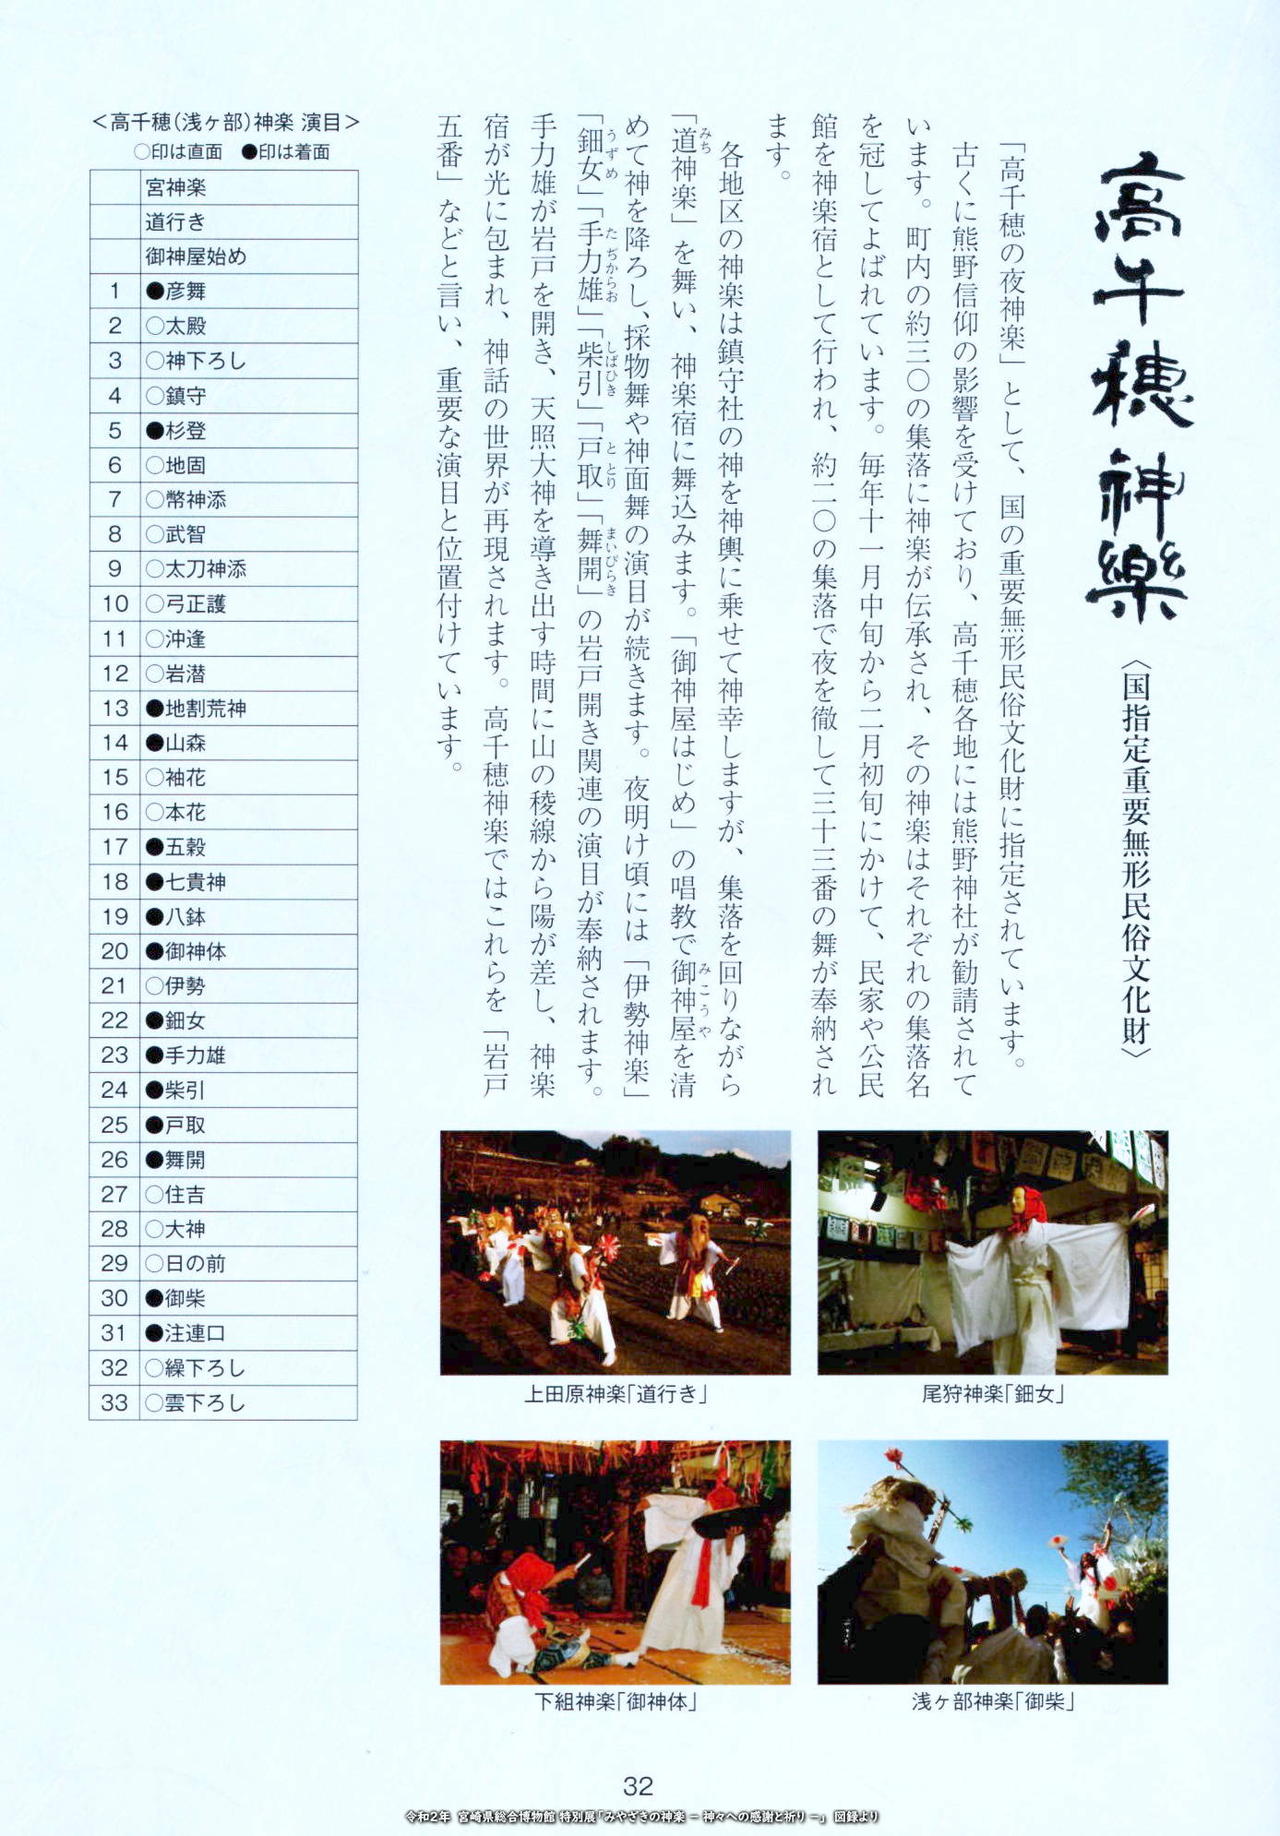 高千穂神樂
〈国指定重要無形民俗文化財〉
「高千穂の夜神楽」として、国の重要無形民俗文化財に指定されています。
古くに熊野信仰の影響を受けており、高千穂各地には熊野神社が勧請されて
います。町内の約三〇の集落に神楽が伝承され、その神楽はそれぞれの集落名
を冠してよばれています。毎年十一月中旬から二月初旬にかけて、民家や公民
館を神楽宿として行われ、約二〇の集落で夜を徹して三十三番の舞が奉納され
ます。
各地区の神楽は鎮守社の神を神輿に乗せて神幸しますが、集落を回りながら
「道神楽」を舞い、神楽宿に舞込みます。「御神屋はじめ」の唱教で御神屋を清
みち
みこうや
めて神を降ろし、採物舞や神面舞の演目が続きます。夜明け頃には「伊勢神楽」
「鈿女」「手力雄」「柴引」「戸取」「舞開」の岩戸開き関連の演目が奉納されます。
うずめ
たぢからお
しばひき
ととり
まいびらき
手力雄が岩戸を開き、天照大神を導き出す時間に山の稜線から陽が差し、神楽
宿が光に包まれ、神話の世界が再現されます。高千穂神楽ではこれらを「岩戸
五番」などと言い、重要な演目と位置付けています。
＜高千穂（浅ヶ部）神楽 演目＞
○印は直面 ●印は着面
宮神楽
道行き
御神屋始め
1 ●彦舞
2 ○太殿
3 ○神下ろし
4 ○鎮守
5 ●杉登
6 ○地固
7 ○幣神添
8 ○武智
9 ○太刀神添
10 ○弓正護
11 ○沖逢
12 ○岩潜
13 ●地割荒神
14 ●山森
15 ○袖花
16 ○本花
17 ●五穀
18 ●七貴神
19 ●八鉢
20 ●御神体
21 ○伊勢
22 ●鈿女
23 ●手力雄
24 ●柴引
25 ●戸取
26 ●舞開
27 ○住吉
28 ○大神
29 ○日の前
30 ●御柴
31 ●注連口
32 ○繰下ろし
33 ○雲下ろし
上田原神楽「道行き」
尾狩神楽「鈿女」
下組神楽「御神体」
浅ヶ部神楽「御柴」
32
令和2年 宮崎県総合博物館 特別展「みやざきの神楽 － 神々への感謝と祈り －」 図録より